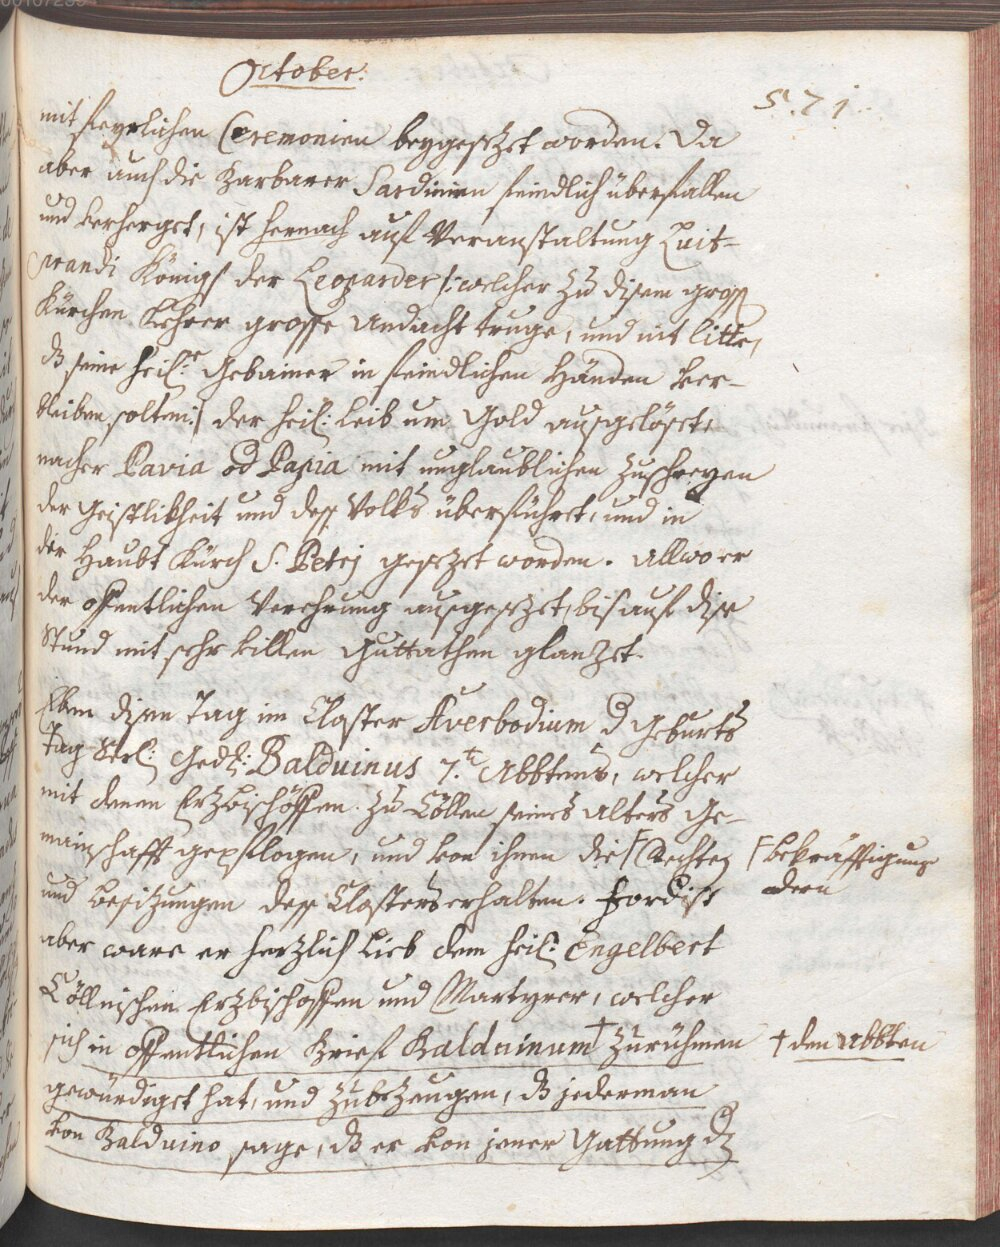 October.
571.
mit feyrlichen Ceremonien beygesezt worden. Da
aber auch die Barbarer Sardinien feindlich überfallen
und verhergt, ist hernach auf Veranstaltung Luit-
prandi Königs der Leoparder /: welcher zu disem gross
Kürchen Lehrer grosse Andacht truge, und nit litte,
dz seine heil.e Gebainer in feindlichen Händen ver-
bleiben solten :/ der heil: Leib um Gold ausgelöset,
nacher Pavia od Papia mit unglaublichen Zuschreyen
der Geistlikheit und dess Volks überführet, und in
der Haubt Kürch S. Petri gesezet worden. Allwo er
der offentlichen Verehrung ausgesezet, bis auf dise
Stund mit sehr villen Gutthaten glanzet.
Eben disen Tag im Closter Averbodium d Geburts
Tag Seel: Ged: Balduinus 7.t Abbtens, welcher
mit denen Erzbischöffen zu Cöllen seines Alters Ge-
mainschafft gepflogen, und von ihnen die Γ Rechten
Γ Bekräfftigung
deren
und Besitzungen dess Closters erhalten. Fordist
aber ware er herzlich lieb dem heil: Engelbert
Cöllnischen Erzbischoffen und Martyrer, welcher
sich in offentlichen Brief Balduinum † zu rühmen
† den Abbten
gewürdiget hat, und zu bezeugen, dz jederman
von Balduino sage, dz er von jener Gattung d